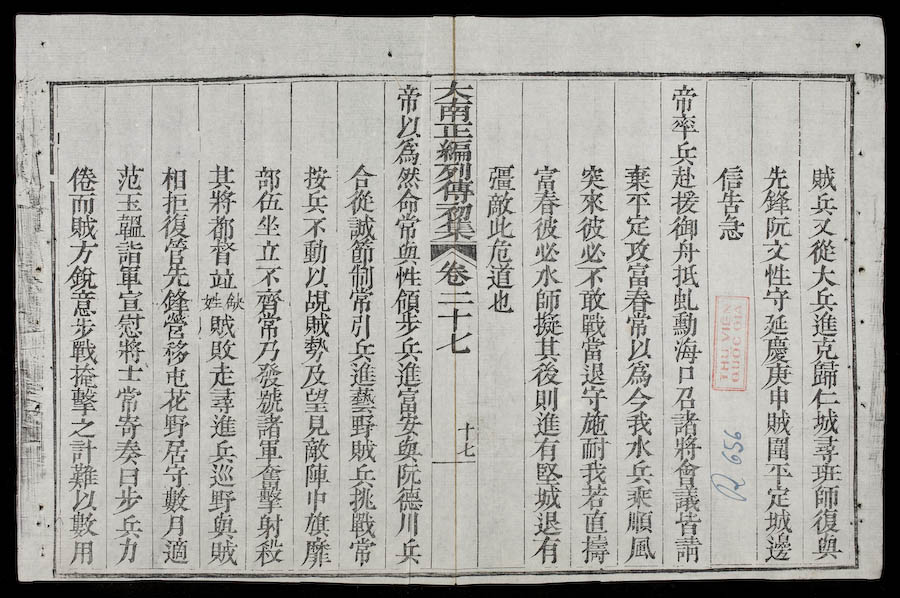 賊兵又從大兵進克歸仁城尋班師復與
先鋒阮文性守延慶庚申賊圍平定城邊
信告急
帝率兵赴援御舟抵虬勳海口召諸將會議皆請
棄平定攻富春常以爲今我水兵乘順風
突來彼必不敢戰當退守施耐我若直擣
富春彼必水師擬其後則進有堅城退有
彊敵此危道也
大南正編列傳初集 卷二十七 十七
帝以爲然命常與性領步兵進富安與阮德川兵
合從誠節制常引兵進藝野賊兵挑戰常
按兵不動以覘賊勢及望見敵陣中旗靡
部伍坐立不齊常乃發號諸軍奮擊射殺
其將都督竝缺姓賊敗走尋進兵巡野與賊
相拒復管先鋒營移屯花野居守數月適
范玉韞詣軍宣慰將士常寄奏曰步兵力
倦而賊方銳意步戰掩擊之計難以數用
THU VIEN
QUOC GIA
R 656